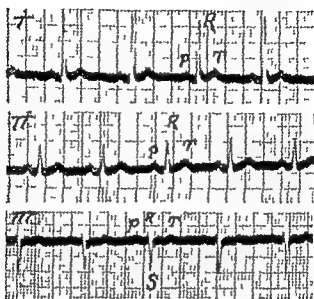 I R
P T
II R
P T
III P R T
S